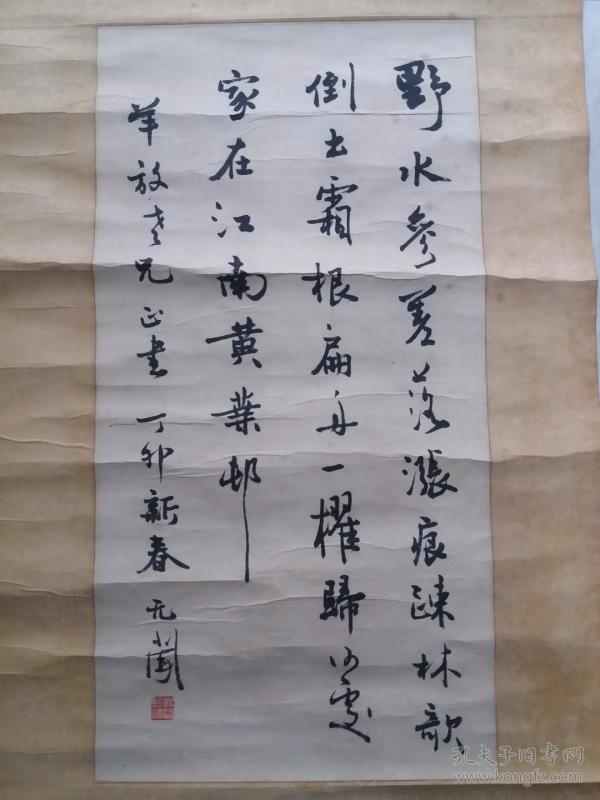 野水參差落漲痕疎林欹
倒出霜根扁舟一櫂歸何處
家在江南黃葉邨
放老兄正書 丁卯新春 无
孔夫子旧书网
www.kongfz.com